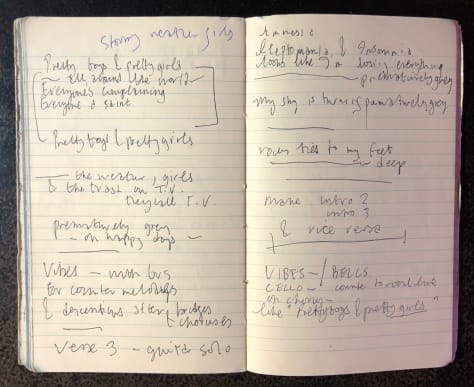 Stormy weather girls
Pretty boys & pretty girls
All around the world
Everyone's complaining
Everyone a saint
Pretty boys & pretty girls
the weather, girls
& the trash on T.V.
They call T.V.
prematurely grey
on happy days
Vibes – with
for counter melodies
& descending after bridges
choruses
Verse 3 – guitar solo
Amnesia
Kleptomania & Insomnia
looks like I'm losing everything
prematurely grey
my sky is turning prematurely grey
to my feet
deep
make intro 2
intro 3
& vice versa
VIBES – / BELLS
CELLO – counter to vocal line
on chorus –
like "Pretty boys & pretty girls"